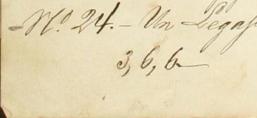 Nº 24. - Un Legajo
3, 6, 6